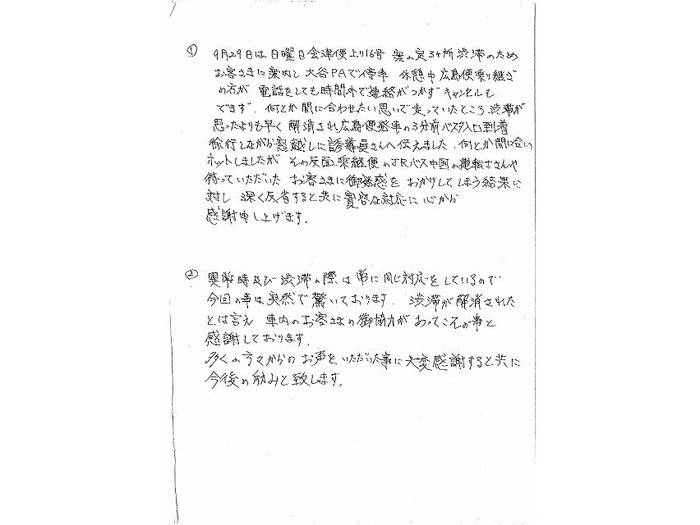 ① 4月29日は日曜日会津便上り16号 案の定3ヶ所渋滞のため
お客さまに案内し 大谷PAで停車 休憩中広島便乗り継ぎ
の方が 電話をしても時間外で連絡がつかず キャンセルも
できず、何とか間に合わせたい思いで走っていたところ、渋滞が
思ったよりも早く 解消され広島便発車の3分前バスタ入口到着
徐行しながら認識しに誘導員さんへ伝えました、何とか間に合い
ホットしましたが その反面 乗継便のJRバス中国の運転士さんや
待っていただいた お客さまに御迷惑を おかけしてしまう結果に
対し 深く反省すると共に寛容な対応に心から
感謝申し上げます。
② 異常時及び渋滞の際は常に同じ対応をしているので
今回の事は突然で驚いております、渋滞が解消された
とは言え 車内のお客さまの御協力があってこその事と
感謝しております。
多くの方々からの お声をいただいた事に大変感謝すると共に
今後の励みと致します。